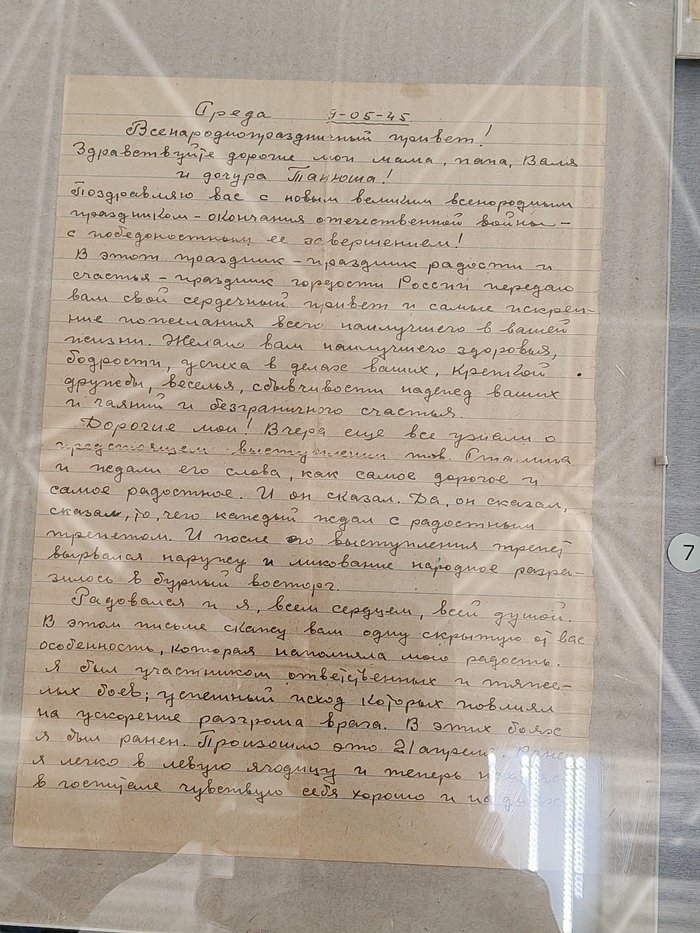 Среда 9-05-45
Всенароднопраздничный привет!
Здравствуйте дорогие мои мама, папа, Валя
и дочура Танюша!
Поздравляю вас с новым великим всенородным
праздником - окончания отечественной войны -
с победоностным ее завершением!
В этот праздник - праздник радости и
счастья - праздник гордости России передаю
вам свой сердечный привет и самые искрен-
ние пожелания всего наилучшего в вашей
жизни. Желаю вам наилучшего здоровья,
бодрости, успеха в делах ваших, крепкой
дружбы, веселья, сбывчивости надежд ваших
и чаяний и безграничного счастья.
Дорогие мои! Вчера еще все узнали о
предстоящем выступлении тов. Сталина
и ждали его слова, как самое дорогое и
самое радостное. И он сказал. Да, он сказал,
сказал, то, чего каждый ждал с радостным
трепетом. И после его выступления трепет
вырвался наружу и ликование народное разра-
зилось в бурный восторг.
Радовался и я, всем сердцем, всей душой.
В этом письме скажу вам одну скрытую от вас
особенность, которая наполняла мою радость.
Я был участником ответственных и тяже-
лых боев; успешный исход которых повлиял
на ускорение разгрома врага. В этих боях
я был ранен. Произошло это 21 апреля.
я легко в левую ягодицу и теперь
в госпитале чувствую себя хорошо и
7